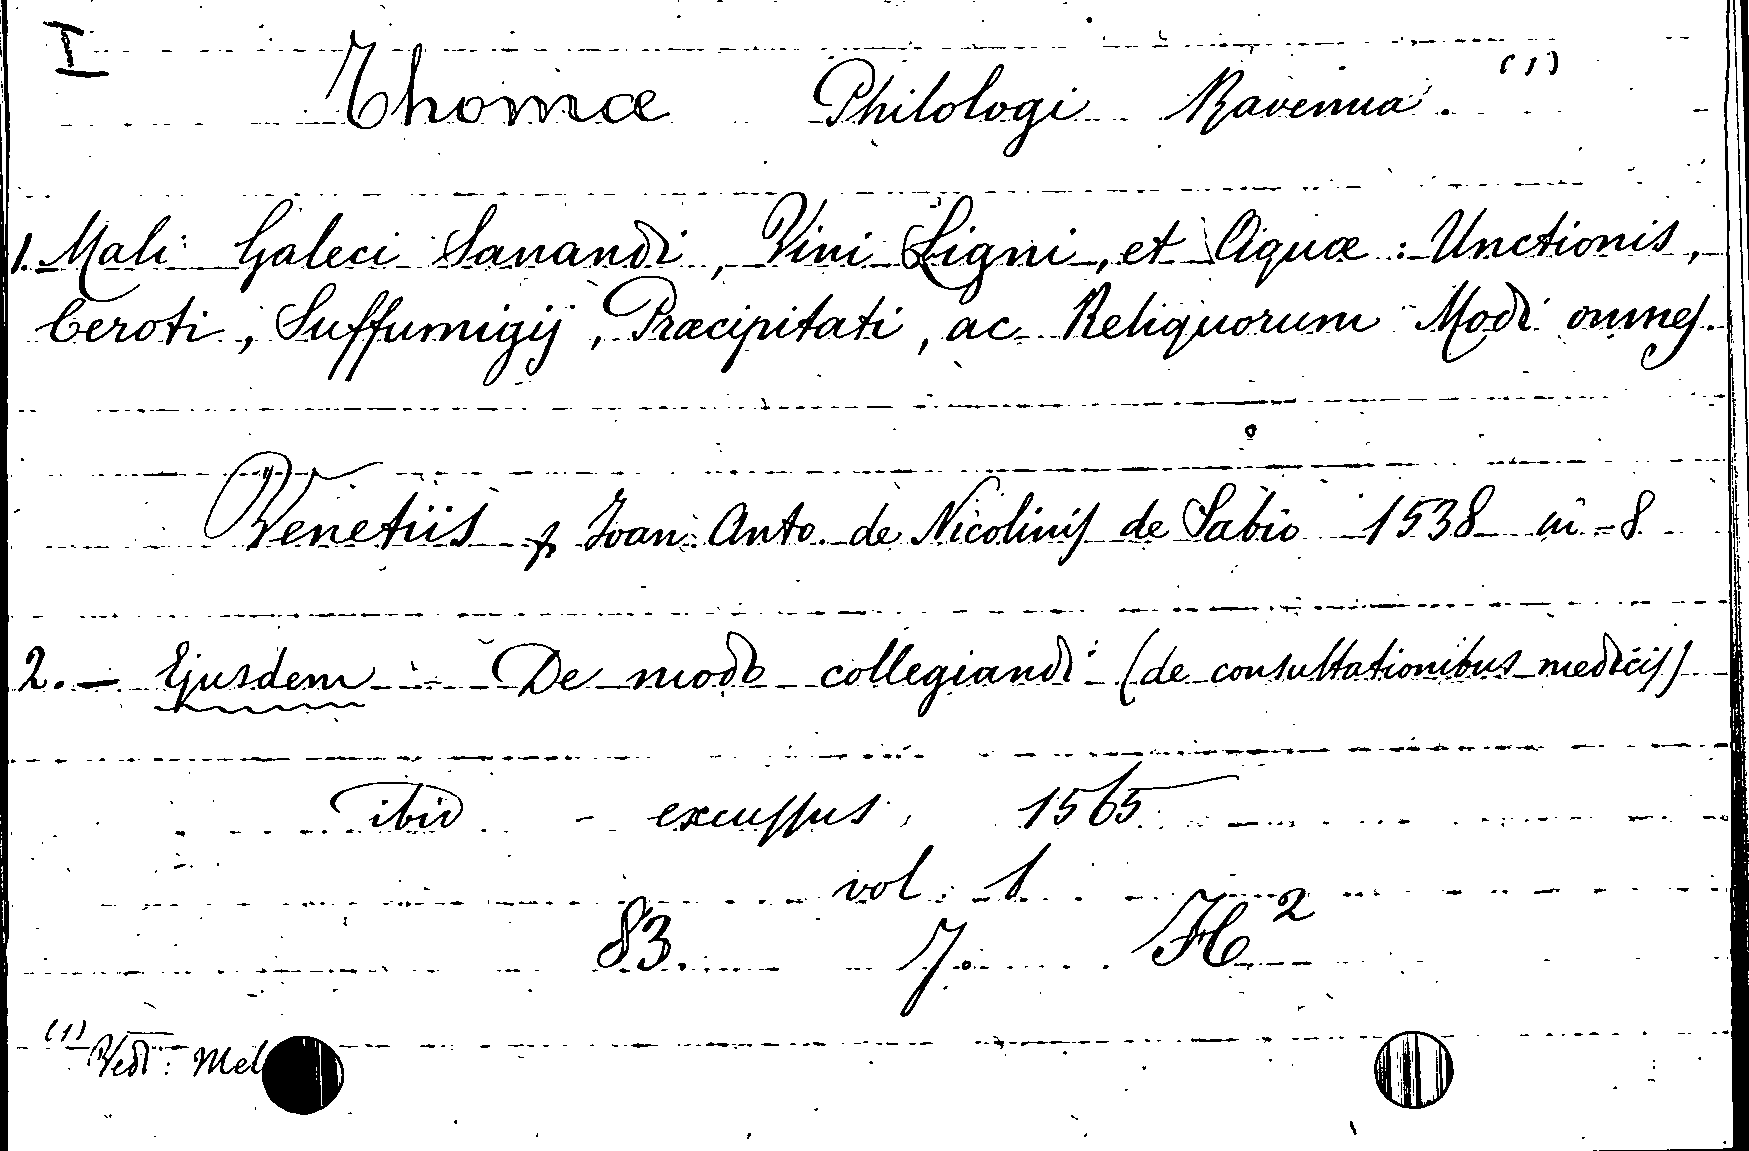 I
Thomæ Philologi Ravenna. (1)
1. Mali Galeci Sanandi, Vini Ligni, et Aquæ: Unctionis,
Ceroti, Suffumigij, Præcipitati, ac Reliquorum Modi omnes.
Venetiis p Joan: Anto. de Nicolinis de Sabio 1538 in-8
2. - Ejusdem - De modo collegiandi (de consultationibus medicis)
ibid - excussus, 1565
vol: 1.
83. 7. H²
(1) Vedi: Mel